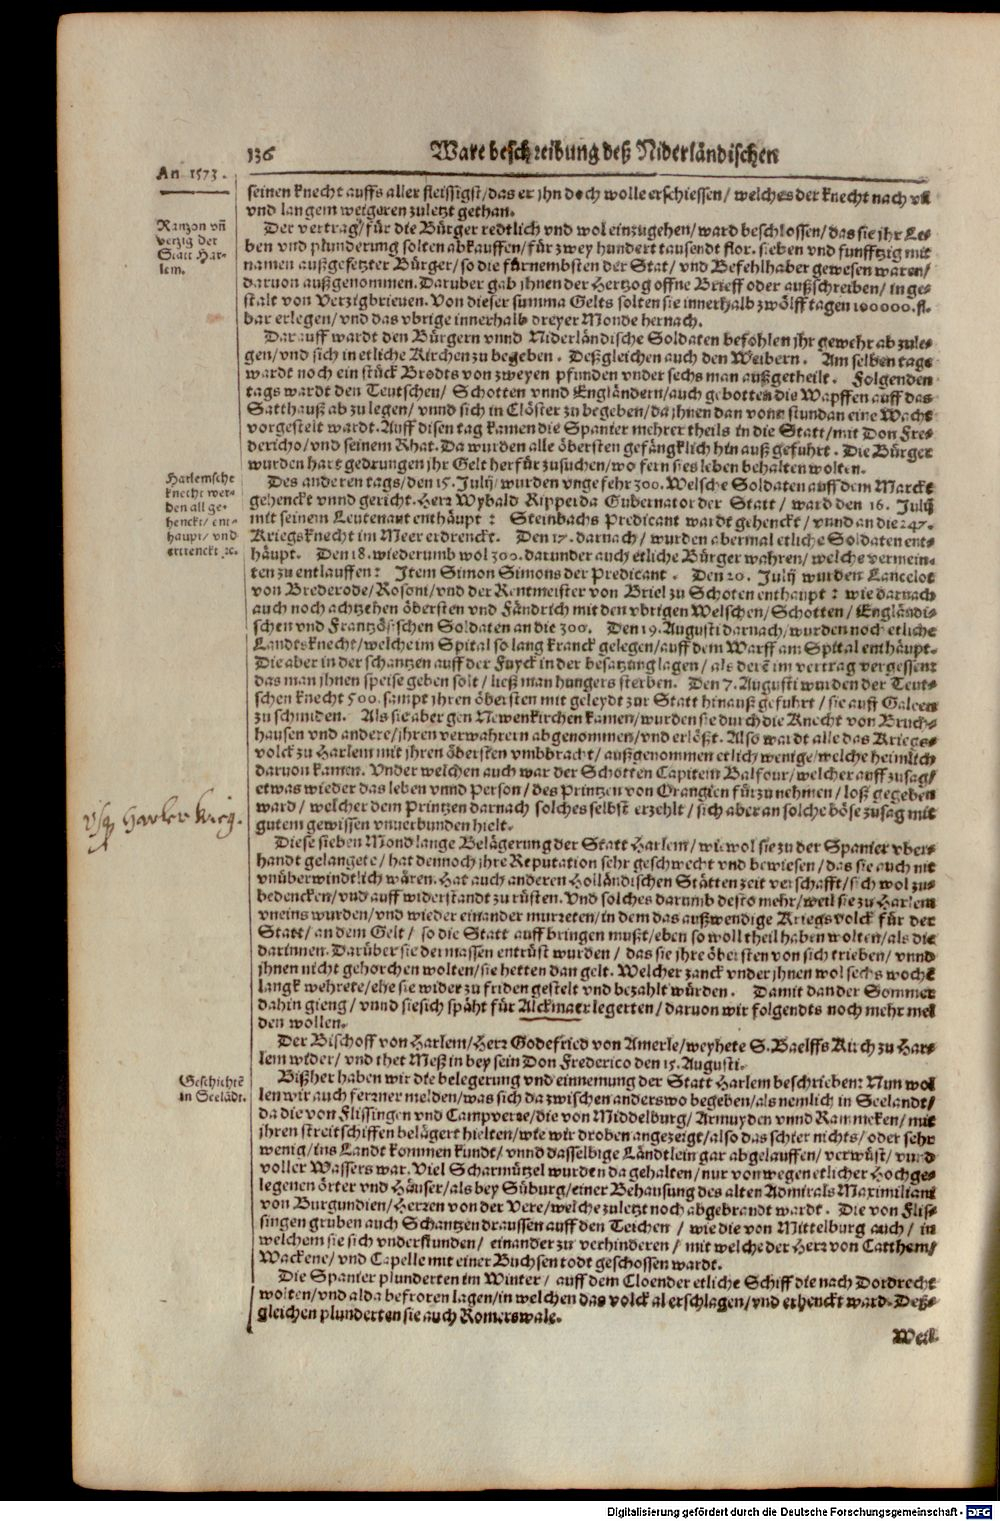 136 Ware beschreibung deß Niderländischen
An 1573.
seinen knecht auffs aller fleissigst/das er jhn doch wolle erschiessen/ welches der knecht nach vil
vnd langem weigeren zuletzt gethan.
Ranzon vñ
verzig der
Statt Har-
lem.
Der vertrag/ für die Bürger redtlich vnd wol einzugehen/ ward beschlossen/ das sie jhr Le-
ben vnd plunderung solten abkauffen/ für zwey hundert tausendt flor. sieben vnd funfftzig mit
namen außgesetzter Bürger/ so die fürnembsten der Stat/ vnd Befehlhaber gewesen waren/
daruon außgenommen. Daruber gab jhnen der Hertzog offne Brieff oder außschreiben/ in ge-
stalt von Verzigbrieuen. Von dieser summa Gelts solten sie innerhalb zwölff tagen 100000. fl.
bar erlegen/ vnd das vbrige innerhalb dreyer Monde hernach.
Darauff wardt den Bürgern vnnd Niderländische Soldaten befohlen jhr gewehr ab zule-
gen/ vnd sich in etliche Kirchen zu begeben. Deßgleichen auch den Weibern. Am selben tags
wardt noch ein stück Brodts von zweyen pfunden vnder sechs man außgetheilt. Folgenden
tags wardt den Teutschen/ Schotten vnnd Engländern/ auch gebotten die Wapffen auff das
Satthauß ab zu legen/ vnnd sich in Clöster zu begeben/ da jhnen dan vonn stundan eine Wacht
vorgestelt wardt. Auff disen tag kamen die Spanier mehrer theils in die Statt/ mit Don Fre-
dericho/ vnd seinem Rhat. Da wurden alle öbersten gefängklich hin auß gefuhrt. Die Bürger
wurden hart gedrungen jhr Gelt herfür zusuchen/ wo fern sies leben behalten wolten.
Harlemsche
knecht wer-
den all ge-
henckt/ ent-
haupt/ vnd
ertrenckt ꝛc.
Des anderen tags/ den 15. Julij wurden vngefehr 300. Welsche Soldaten auff dem Marckt
gehenckt vnnd gericht. Herr Wybald Ripperda Gubernator der Statt/ ward den 16. Julij
mit seinem Leutenant enthäupt: Steinbachs Predicant wardt gehenckt/ vnnd an die 247.
Kriegsknecht im Meer erdrenckt. Den 17. darnach/ wurden abermal etliche Soldaten ent-
häupt. Den 18. wiederumb wol 300. darunder auch etliche Bürger wahren/ welche vermein-
ten zu entlauffen: Item Simon Simons der Predicant. Den 20. Julij wurden Lancelot
von Brederode/ Rosoni/ vnd der Rentmeister von Briel zu Schoten enthaupt: wie darnach
auch noch achtzehen öbersten vnd Fändrich mit den vbrigen Welschen/ Schotten/ Engländi-
schen vnd Frantzösischen Soldaten an die 300. Den 19. Augusti darnach/ wurden noch etliche
Landtsknecht/ welche im Spital so lang kranck gelegen/ auff dem Warff am Spital enthäupt.
Die aber in der schantzen auff der Fuyck in der besatzung lagen/ als derē im vertrag vergessen:
das man jhnen speise geben solt/ ließ man hungers sterben. Den 7. Augusti wurden der Teut-
schen knecht 500. sampt jhren öbersten mit geleydt zur Statt hinauß gefuhrt/ sie auff Galeen
zu schmiden. Als sie aber gen Newenkirchen kamen/ wurden sie durch die Knecht von Bruch-
hausen vnd andere/ jhren verwahrern abgenommen/ vnd erlößt. Also wardt alle das Kriegs-
volck zu Harlem mit jhren öbersten vmbbracht/ außgenommen etlich wenige/ welche heimlich
daruon kamen. Vnder welchen auch war der Schotten Capitein Balfour/ welcher auff zusag/
etwas wieder das leben vnnd Person/ des Printzen von Orangien fürzunehmen/ loß gegeben
ward/ welcher dem Printzen darnach solches selbst erzehlt/ sich aber an solche böse zusag mit
gutem gewissen vnuerbunden hielt.
Harler Krieg.
Diese sieben Mond lange Belägerung der Statt Harlem/ wiewol sie zu der Spanier vber-
handt gelangete/ hat dennoch jhre Reputation sehr geschwecht vnd bewiesen/ das sie auch nit
vnüberwindtlich wären. Hat auch anderen Holländischen Stätten zeit verschafft/ sich wol zu-
bedencken/ vnd auff widerstandt zu rüsten. Vnd solches darumb desto mehr/ weil sie zu Harlem
vneins wurden/ vnd wieder einander murreten/ in dem das außwendige Kriegsvolck für der
Statt/ an dem Gelt/ so die Statt auff bringen mußt/ eben so woll theil haben wolten/ als die
darinnen. Darüber sie dermassen entrüst wurden/ das sie jhre öbersten von sich trieben/ vnnd
jhnen nicht gehorchen wolten/ sie hetten dan gelt. Welcher zanck vnder jhnen wol sechs wochē
langk wehrete/ ehe sie wider zu friden gestelt vnd bezahlt würden. Damit dan der Sommer
dahin gieng/ vnnd sie sich späht für Alckmaer legerten/ daruon wir folgendts noch mehr mel
den wollen.
Der Bischoff von Harlem/ Herr Godefried von Amerle/ weyhete S. Baelffs Kirch zu Har-
lem wider/ vnd thet Meß in bey sein Don Frederico den 15. Augusti.
Geschichtē
in Seelādt.
Bißher haben wir die belegerung vnd einnemung der Statt Harlem beschrieben: Nun wol
len wir auch ferrner melden/ was sich da zwischen anderswo begeben/ als nemlich in Seelandt/
da die von Flissingen vnd Campverre/ die von Middelburg/ Armuyden vnnd Rammeken/ mit
jhren streitschiffen belägert hielten/ wie wir droben angezeigt/ also das schier nichts/ oder sehr
wenig/ ins Landt kommen kundt/ vnnd dasselbige Ländtlein gar abgelauffen/ verwüst/ vnnd
voller Wassers war. Viel Scharmützel wurden da gehalten/ nur von wegen etlicher Hochge-
legenen örter vnd Häuser/ als bey Süburg/ einer Behausung des alten Admirals Maximiliani
von Burgundien/ Herzen von der Vere/ welche zuletzt noch abgebrandt wardt. Die von Flis-
singen gruben auch Schantzen draussen auff den Teichen/ wie die von Mittelburg auch/ in
welchem sie sich vnderstunden/ einander zu verhinderen/ mit welche der Herr von Catthem/
Wackene/ vnd Capelle mit einer Buchsen todt geschossen wardt.
Die Spanier plunderten im Winter/ auff dem Cloender etliche Schiff die nach Dordrecht
wolten/ vnd alda befroren lagen/ in welchen das volck al erschlagen/ vnd erhenckt ward. Deß-
gleichen plunderten sie auch Romerswale.
Weil
Digitalisierung gefördert durch die Deutsche Forschungsgemeinschaft - DFG